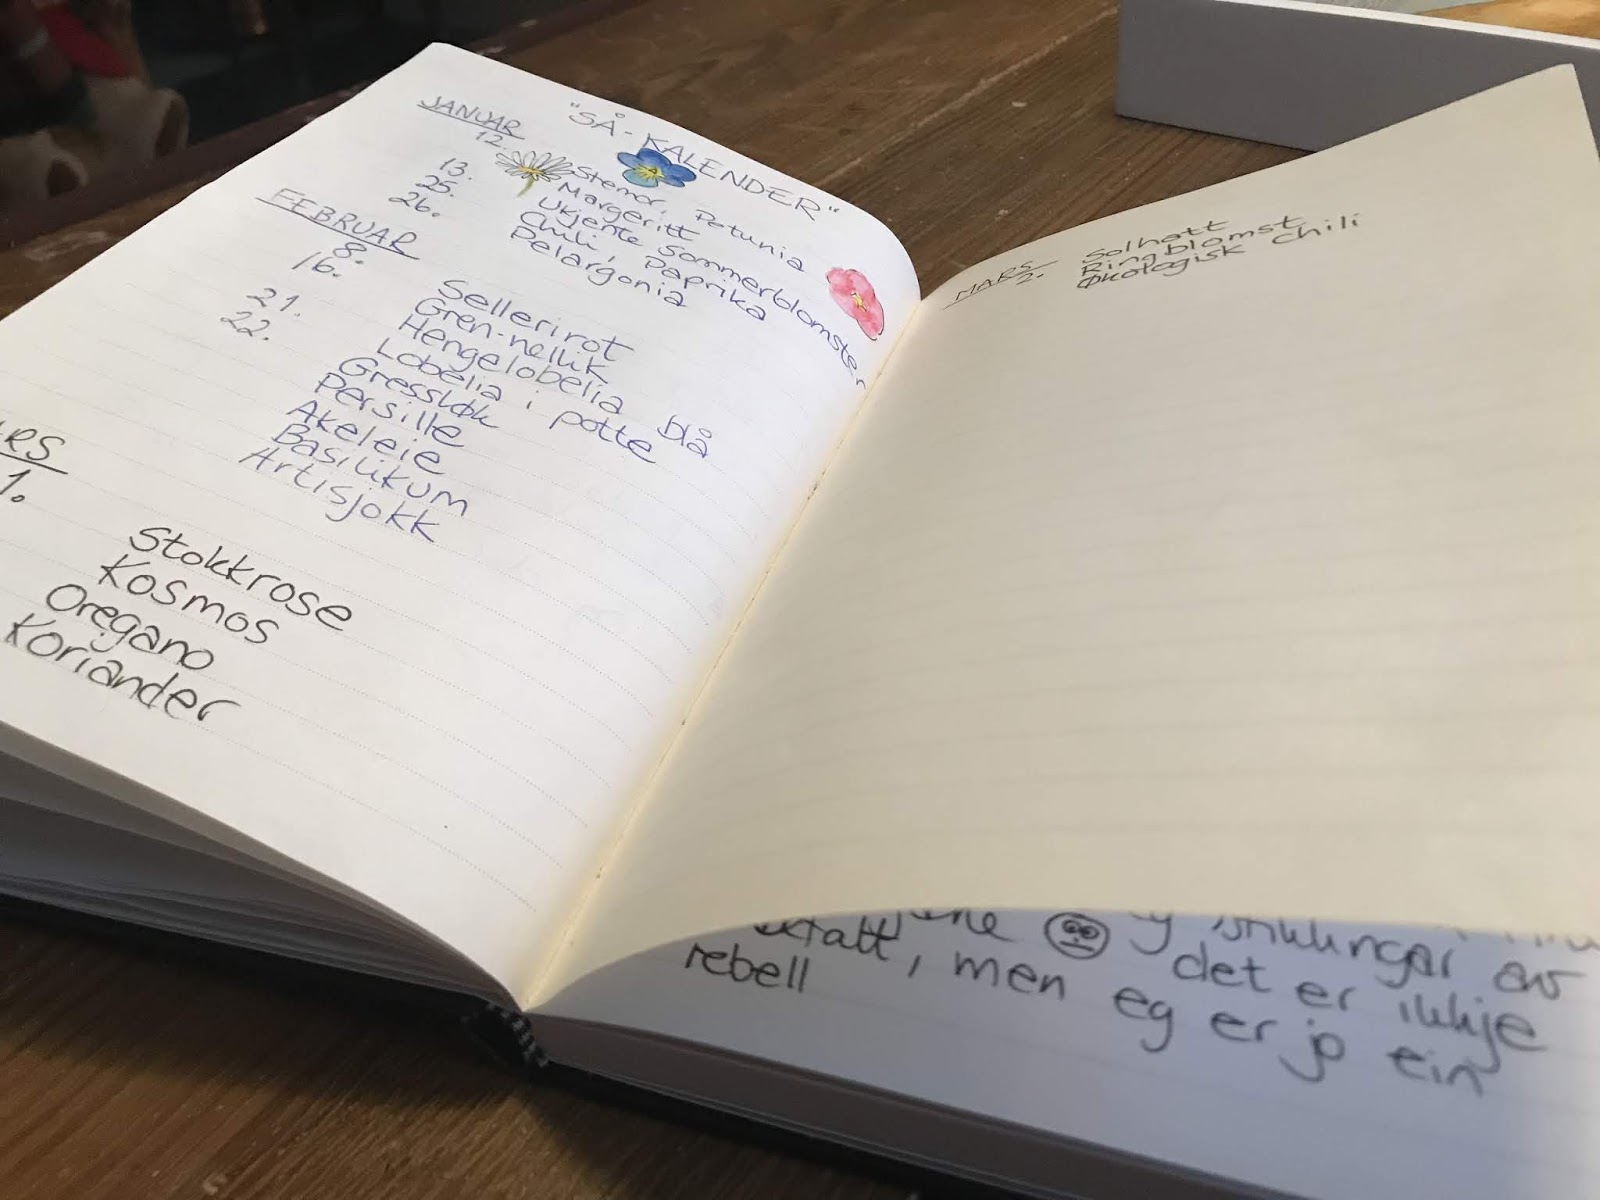 "SÅ-KALENDER"
JANUAR
12. Stemor, Petunia
Margeritt
13. Ukjente Sommerblomster
25. Chili, Paprika
26. Pelargonia
FEBRUAR
8. Sellerirot
16. Gren-nellik
Hengelobelia blå
21. Lobelia i potte
22. Gressløk
Persille
Akeleie
Basilikum
Artisjokk
RS
1. Stokkrose
Kosmos
Oregano
Koriander
MARS
2. Solhatt
Ringblomst
Økologisk chili
stikkingar av
det er ikkje
, men eg er jo ein
rebell